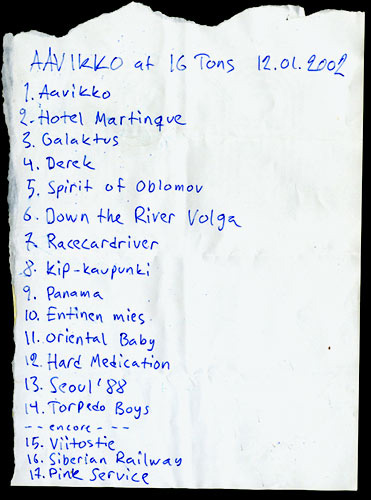 AAVIKKO at 16 Tons 12.01.2002
1. Aavikko
2. Hotel Martinque
3. Galaktus
4. Derek
5. Spirit of Oblomov
6. Down the River Volga
7. Racecardriver
8. Kip-kaupunki
9. Panama
10. Entinen mies
11. Oriental Baby
12. Hard Medication
13. Seoul '88
14. Torpedo Boys
-- encore ---
15. Viitostie
16. Siberian Railway
17. Pink Service